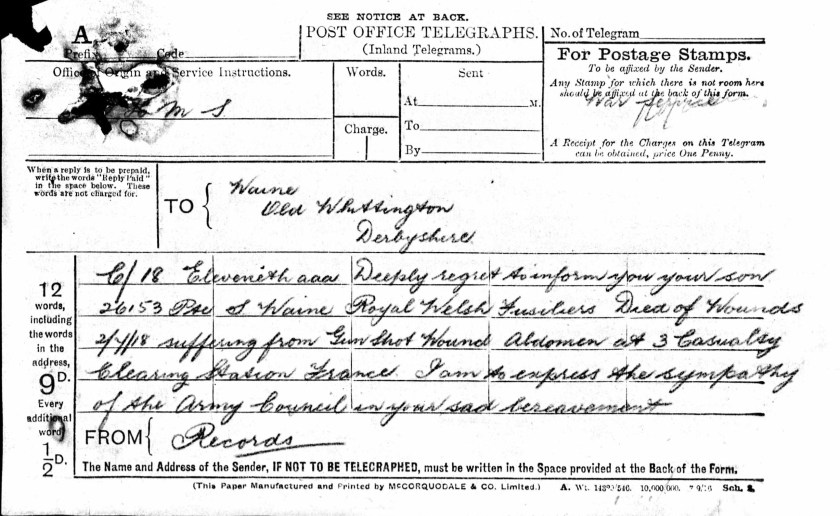 SEE NOTICE AT BACK.
POST OFFICE TELEGRAPHS.
(Inland Telegrams.)
No. of Telegram
A
Prefix Code
Office of Origin and Service Instructions.
O H M S
Words.
Charge.
Sent
At M.
To
By
For Postage Stamps.
To be affixed by the Sender.
Any Stamp for which there is not room here
should be affixed at the back of this form.
War
A Receipt for the Charges on this Telegram
can be obtained, price One Penny.
When a reply is to be prepaid,
write the words "Reply Paid"
in the space below. These
words are not charged for.
TO
Waine
Old Whittington
Derbyshire
12
words,
including
the words
in the
address,
9D.
Every
additional
word
½D.
C/18 Eleveneth aaa Deeply regret to inform you your son
26153 Pte S. Waine Royal Welsh Fusiliers Died of Wounds
2/4/18 suffering from Gun Shot Wound Abdomen at 3 Casualty
Clearing Station France. I am to express the sympathy
of the Army Council in your sad bereavement
FROM Records
The Name and Address of the Sender, IF NOT TO BE TELEGRAPHED, must be written in the Space provided at the Back of the Form.
(This Paper Manufactured and Printed by MCCORQUODALE & CO. Limited.) A. Wt. 10,000,000. Sch.